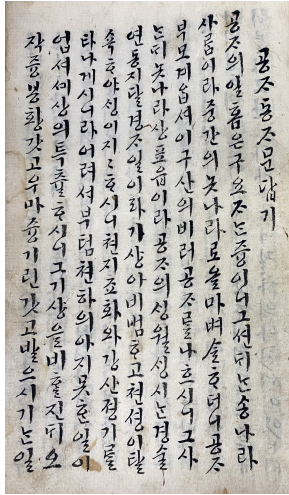 공ᄌᆞ동ᄌᆞ문답기
공ᄌᆞ의일홈은구요ᄌᆞᄂᆞᆫ즁이니그션ᄃᆡᄂᆞᆫ숑나라
사ᄅᆞᆷ이라즁간의노나라로올마벼슬ᄒᆞ더니공ᄌᆞ
부모계읍셔이구산의비러공ᄌᆞᄅᆞᆯ나흐시니그사
ᄂᆞᆫᄃᆡ노나라창표읍이라공ᄌᆞ의성월성시ᄂᆞᆫ경술
연동지달경ᄌᆞ일이라가샹이비범ᄒᆞ고쳔셩이탈
속ᄒᆞ야싱이지지ᄒᆞ시니쳔지죠화와강산졍기ᄅᆞᆯ
타나계시니라어려셔부텀쳔하의아지못ᄒᆞᆫ일이
업셔셰상의투츌ᄒᆞ시니그기샹을비ᄒᆞᆯ진ᄃᆡ오
작즁봉황갓고우마즁기린갓고발으시기ᄂᆞᆫ일